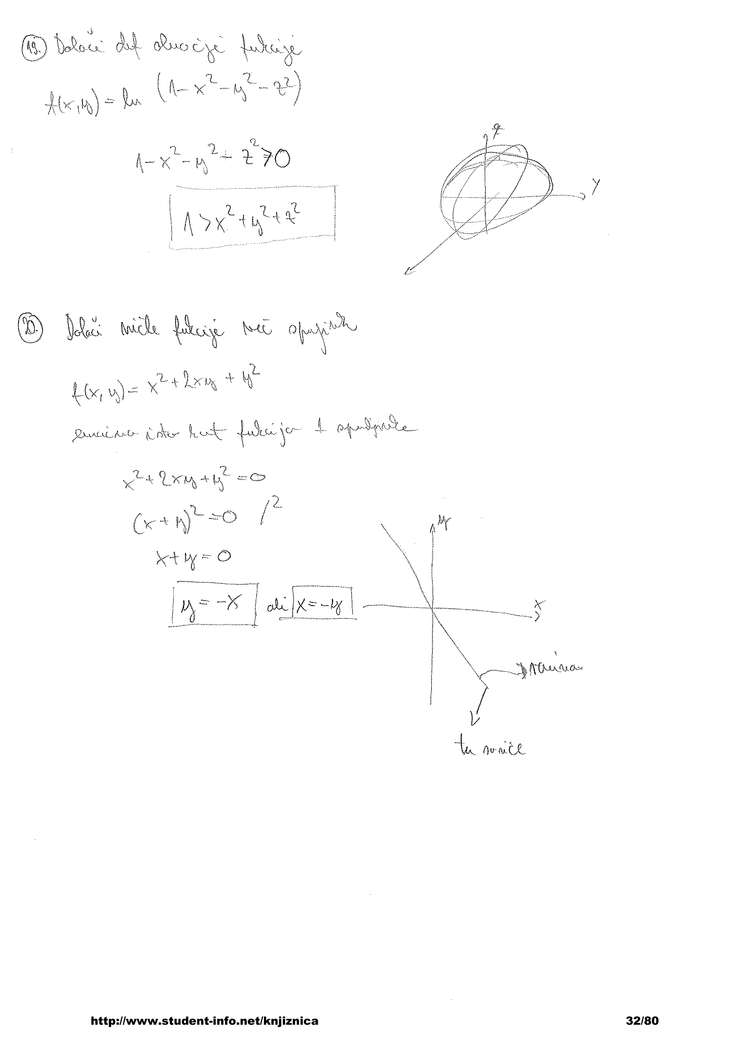 19. Določi def območje funkcije
f(x,y) = ln (1-x²-y²-z²)
1-x²-y²-z²>0
1>x²+y²+z²
z
y
20. Določi ničle funkcije več spremenlj.
f(x,y) = x²+2xy+y²
enako kot funkcija 1 spremenljivke
x²+2xy+y²=0
(x+y)²=0 /²
x+y=0
y=-x ali x=-y
y
x
ravnina
tu so ničle
http://www.student-info.net/knjiznica 32/80